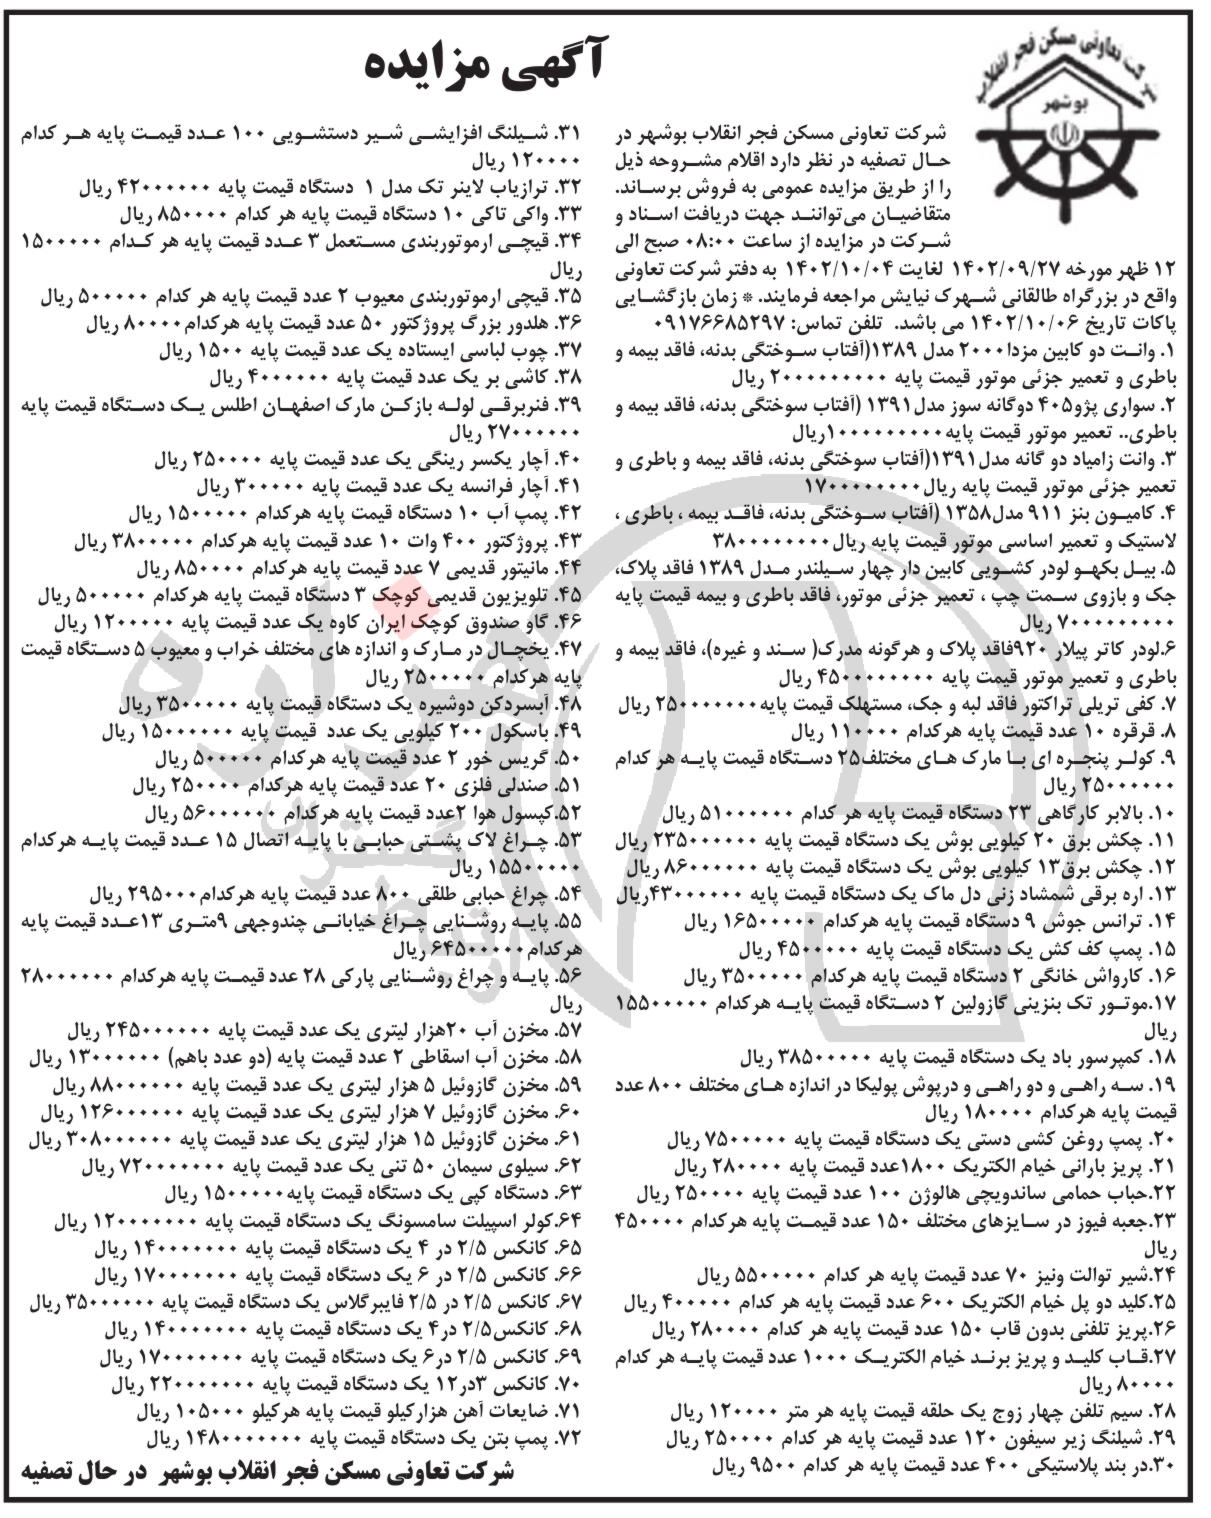 آگهی مزایده
شرکت تعاونی مسکن فجر انقلاب
بوشهر
شرکت تعاونی مسکن فجر انقلاب بوشهر در
حال تصفیه در نظر دارد اقلام مشروحه ذیل
را از طریق مزایده عمومی به فروش برساند.
متقاضیان می‌توانند جهت دریافت اسناد و
شرکت در مزایده از ساعت ۰۸:۰۰ صبح الی
۱۲ ظهر مورخه ۱۴۰۲/۰۹/۲۷ لغایت ۱۴۰۲/۱۰/۰۴ به دفتر شرکت تعاونی
واقع در بزرگراه طالقانی شهرک نیایش مراجعه فرمایند. * زمان بازگشایی
پاکات تاریخ ۱۴۰۲/۱۰/۰۶ می باشد. تلفن تماس: ۰۹۱۷۶۶۸۵۲۹۷
۱. وانت دو کابین مزدا۲۰۰۰ مدل ۱۳۸۹(آفتاب سوختگی بدنه، فاقد بیمه و
باطری و تعمیر جزئی موتور قیمت پایه ۲۰۰۰۰۰۰۰۰۰ ریال
۲. سواری پژو۴۰۵ دوگانه سوز مدل۱۳۹۱ (آفتاب سوختگی بدنه، فاقد بیمه و
باطری.. تعمیر موتور قیمت پایه۱۰۰۰۰۰۰۰۰۰ریال
۳. وانت زامیاد دو گانه مدل۱۳۹۱(آفتاب سوختگی بدنه، فاقد بیمه و باطری و
تعمیر جزئی موتور قیمت پایه ریال۱۷۰۰۰۰۰۰۰۰
۴. کامیون بنز ۹۱۱ مدل۱۳۵۸ (آفتاب سوختگی بدنه، فاقد بیمه ، باطری ،
لاستیک و تعمیر اساسی موتور قیمت پایه ریال۳۸۰۰۰۰۰۰۰۰
۵. بیل بکهو لودر کشویی کابین دار چهار سیلندر مدل ۱۳۸۹ فاقد پلاک،
جک و بازوی سمت چپ ، تعمیر جزئی موتور، فاقد باطری و بیمه قیمت پایه
۷۰۰۰۰۰۰۰۰۰ ریال
۶.لودر کاتر پیلار ۹۲۰فاقد پلاک و هرگونه مدرک( سند و غیره)، فاقد بیمه و
باطری و تعمیر موتور قیمت پایه ۴۵۰۰۰۰۰۰۰۰ ریال
۷. کفی تریلی تراکتور فاقد لبه و جک، مستهلک قیمت پایه۲۵۰۰۰۰۰۰۰ ریال
۸. قرقره ۱۰ عدد قیمت پایه هرکدام ۱۱۰۰۰۰ ریال
۹. کولر پنجره ای با مارک های مختلف۲۵ دستگاه قیمت پایه هر کدام
۲۵۰۰۰۰۰۰ ریال
۱۰. بالابر کارگاهی ۲۳ دستگاه قیمت پایه هر کدام ۵۱۰۰۰۰۰۰ ریال
۱۱. چکش برق ۲۰ کیلویی بوش یک دستگاه قیمت پایه ۲۳۵۰۰۰۰۰۰ ریال
۱۲. چکش برق۱۳ کیلویی بوش یک دستگاه قیمت پایه ۸۶۰۰۰۰۰۰ ریال
۱۳. اره برقی شمشاد زنی دل ماک یک دستگاه قیمت پایه ۴۳۰۰۰۰۰۰ریال
۱۴. ترانس جوش ۹ دستگاه قیمت پایه هرکدام ۱۶۵۰۰۰۰۰ ریال
۱۵. پمپ کف کش یک دستگاه قیمت پایه ۴۵۰۰۰۰۰ ریال
۱۶. کارواش خانگی ۲ دستگاه قیمت پایه هرکدام ۳۵۰۰۰۰۰ ریال
۱۷.موتور تک بنزینی گازولین ۲ دستگاه قیمت پایه هرکدام ۱۵۵۰۰۰۰۰
ریال
۱۸. کمپرسور باد یک دستگاه قیمت پایه ۳۸۵۰۰۰۰۰ ریال
۱۹. سه راهی و دو راهی و درپوش پولیکا در اندازه های مختلف ۸۰۰ عدد
قیمت پایه هرکدام ۱۸۰۰۰۰ ریال
۲۰. پمپ روغن کشی دستی یک دستگاه قیمت پایه ۷۵۰۰۰۰۰ ریال
۲۱. پریز بارانی خیام الکتریک ۱۸۰۰عدد قیمت پایه ۲۸۰۰۰۰ ریال
۲۲.حباب حمامی ساندویچی هالوژن ۱۰۰ عدد قیمت پایه ۲۵۰۰۰۰ ریال
۲۳.جعبه فیوز در سایزهای مختلف ۱۵۰ عدد قیمت پایه هرکدام ۴۵۰۰۰۰
ریال
۲۴.شیر توالت ونیز ۷۰ عدد قیمت پایه هر کدام ۵۵۰۰۰۰۰ ریال
۲۵.کلید دو پل خیام الکتریک ۶۰۰ عدد قیمت پایه هر کدام ۴۰۰۰۰۰ ریال
۲۶.پریز تلفنی بدون قاب ۱۵۰ عدد قیمت پایه هر کدام ۲۸۰۰۰۰ ریال
۲۷.قاب کلید و پریز برند خیام الکتریک ۱۰۰۰ عدد قیمت پایه هر کدام
۸۰۰۰۰ ریال
۲۸. سیم تلفن چهار زوج یک حلقه قیمت پایه هر متر ۱۲۰۰۰۰ ریال
۲۹. شیلنگ زیر سیفون ۱۲۰ عدد قیمت پایه هر کدام ۲۵۰۰۰۰ ریال
۳۰.در بند پلاستیکی ۴۰۰ عدد قیمت پایه هر کدام ۹۵۰۰ ریال
۳۱. شیلنگ افزایشی شیر دستشویی ۱۰۰ عدد قیمت پایه هر کدام
۱۲۰۰۰۰ ریال
۳۲. ترازیاب لاینر تک مدل ۱ دستگاه قیمت پایه ۴۲۰۰۰۰۰۰ ریال
۳۳. واکی تاکی ۱۰ دستگاه قیمت پایه هر کدام ۸۵۰۰۰۰ ریال
۳۴. قیچی ارموتوربندی مستعمل ۳ عدد قیمت پایه هر کدام ۱۵۰۰۰۰۰
ریال
۳۵. قیچی ارموتوربندی معیوب ۲ عدد قیمت پایه هر کدام ۵۰۰۰۰۰ ریال
۳۶. هلدور بزرگ پروژکتور ۵۰ عدد قیمت پایه هرکدام۸۰۰۰۰ ریال
۳۷. چوب لباسی ایستاده یک عدد قیمت پایه ۱۵۰۰ ریال
۳۸. کاشی بر یک عدد قیمت پایه ۴۰۰۰۰۰۰ ریال
۳۹. فنربرقی لوله بازکن مارک اصفهان اطلس یک دستگاه قیمت پایه
۲۷۰۰۰۰۰۰ ریال
۴۰. آچار یکسر رینگی یک عدد قیمت پایه ۲۵۰۰۰۰ ریال
۴۱. آچار فرانسه یک عدد قیمت پایه ۳۰۰۰۰۰ ریال
۴۲. پمپ آب ۱۰ دستگاه قیمت پایه هرکدام ۱۵۰۰۰۰۰ ریال
۴۳. پروژکتور ۴۰۰ وات ۱۰ عدد قیمت پایه هرکدام ۳۸۰۰۰۰۰ ریال
۴۴. مانیتور قدیمی ۷ عدد قیمت پایه هرکدام ۸۵۰۰۰۰ ریال
۴۵. تلویزیون قدیمی کوچک ۳ دستگاه قیمت پایه هرکدام ۵۰۰۰۰۰ ریال
۴۶. گاو صندوق کوچک ایران کاوه یک عدد قیمت پایه ۱۲۰۰۰۰۰ ریال
۴۷. یخچال در مارک و اندازه های مختلف خراب و معیوب ۵ دستگاه قیمت
پایه هرکدام ۲۵۰۰۰۰۰ ریال
۴۸. آبسردکن دوشیره یک دستگاه قیمت پایه ۳۵۰۰۰۰۰ ریال
۴۹. باسکول ۲۰۰ کیلویی یک عدد قیمت پایه ۱۵۰۰۰۰۰۰ ریال
۵۰. گریس خور ۲ عدد قیمت پایه هرکدام ۵۰۰۰۰۰ ریال
۵۱. صندلی فلزی ۲۰ عدد قیمت پایه هرکدام ۲۵۰۰۰۰ ریال
۵۲.کپسول هوا ۲عدد قیمت پایه هرکدام ۵۶۰۰۰۰۰۰ ریال
۵۳. چراغ لاک پشتی حبابی با پایه اتصال ۱۵ عدد قیمت پایه هرکدام
۱۵۵۰۰۰۰۰ ریال
۵۴. چراغ حبابی طلقی ۸۰۰ عدد قیمت پایه هرکدام۲۹۵۰۰۰ ریال
۵۵. پایه روشنایی چراغ خیابانی چندوجهی ۹متری ۱۳عدد قیمت پایه
هرکدام۶۴۵۰۰۰۰۰ ریال
۵۶. پایه و چراغ روشنایی پارکی ۲۸ عدد قیمت پایه هرکدام ۲۸۰۰۰۰۰۰
ریال
۵۷. مخزن آب ۲۰هزار لیتری یک عدد قیمت پایه ۲۴۵۰۰۰۰۰۰ ریال
۵۸. مخزن آب اسقاطی ۲ عدد قیمت پایه (دو عدد باهم) ۱۳۰۰۰۰۰۰ ریال
۵۹. مخزن گازوئیل ۵ هزار لیتری یک عدد قیمت پایه ۸۸۰۰۰۰۰۰ ریال
۶۰. مخزن گازوئیل ۷ هزار لیتری یک عدد قیمت پایه ۱۲۶۰۰۰۰۰۰ ریال
۶۱. مخزن گازوئیل ۱۵ هزار لیتری یک عدد قیمت پایه ۳۰۸۰۰۰۰۰۰ ریال
۶۲. سیلوی سیمان ۵۰ تنی یک عدد قیمت پایه ۷۲۰۰۰۰۰۰۰ ریال
۶۳. دستگاه کپی یک دستگاه قیمت پایه۱۵۰۰۰۰۰ ریال
۶۴.کولر اسپیلت سامسونگ یک دستگاه قیمت پایه ۱۲۰۰۰۰۰۰۰ ریال
۶۵. کانکس ۲/۵ در ۴ یک دستگاه قیمت پایه ۱۴۰۰۰۰۰۰۰ ریال
۶۶. کانکس ۲/۵ در ۶ یک دستگاه قیمت پایه ۱۷۰۰۰۰۰۰۰ ریال
۶۷. کانکس ۲/۵ در ۲/۵ فایبرگلاس یک دستگاه قیمت پایه ۳۵۰۰۰۰۰۰ ریال
۶۸. کانکس۲/۵ در۴ یک دستگاه قیمت پایه ۱۴۰۰۰۰۰۰۰ ریال
۶۹. کانکس ۲/۵ در۶ یک دستگاه قیمت پایه ۱۷۰۰۰۰۰۰۰ ریال
۷۰. کانکس ۳در۱۲ یک دستگاه قیمت پایه ۲۲۰۰۰۰۰۰۰ ریال
۷۱. ضایعات آهن هزارکیلو قیمت پایه هرکیلو ۱۰۵۰۰۰ ریال
۷۲. پمپ بتن یک دستگاه قیمت پایه ۱۴۸۰۰۰۰۰۰۰ ریال
شرکت تعاونی مسکن فجر انقلاب بوشهر در حال تصفیه
هزاره